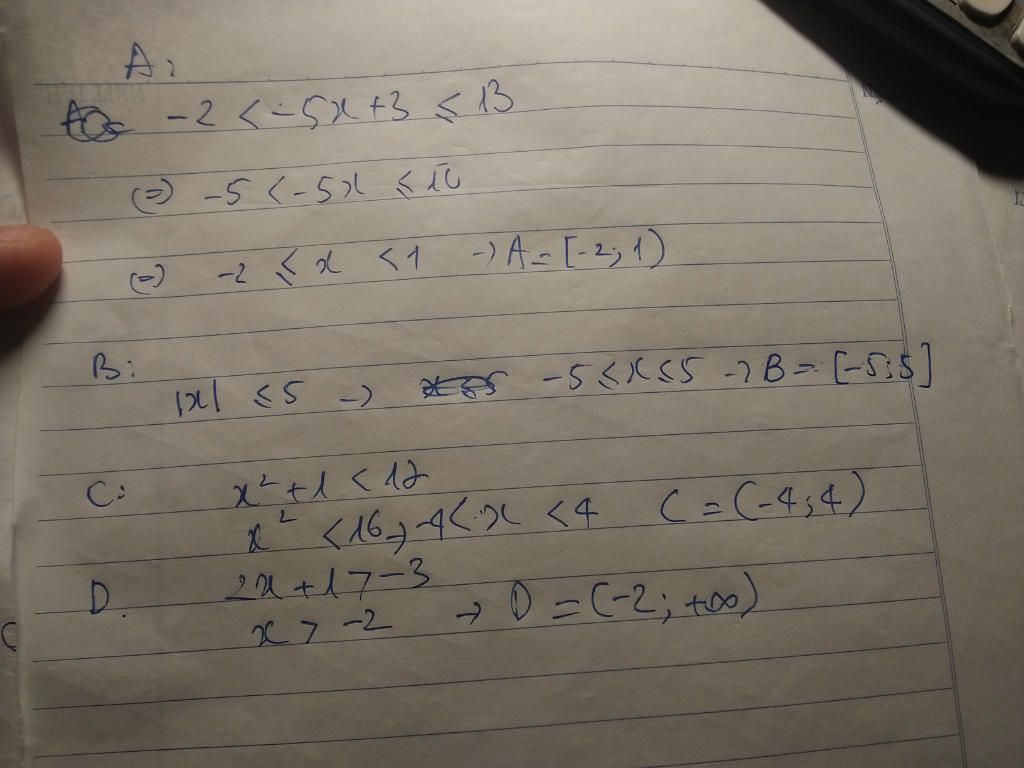 A:
-2 < -5x + 3 ≤ 13
(=) -5 < -5x ≤ 10
(=) -2 ≤ x < 1 → A = [-2; 1)
B:
|x| ≤ 5 → -5 ≤ x ≤ 5 → B = [-5; 5]
C: x² + 1 < 17
x² < 16 → -4 < x < 4 C = (-4; 4)
D. 2x + 1 > -3
x > -2 → D = (-2; +∞)